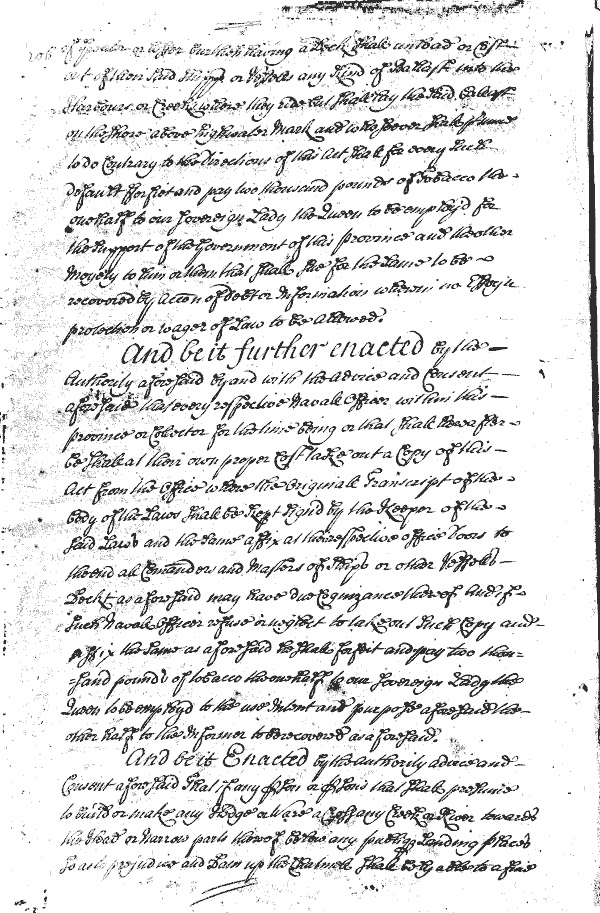 of Ships or other Burthen having a Deck shall unload or Cast
out of their said Shipps or Vessells any Kind of Ballast into the
Harbours or Creeks where they ride but shall lay the said Ballast
on the shore above highwater Mark and whosoever shall presume
to do Contrary to the Directions of this Act shall for every such
default fforfiet and pay two thousand pounds of Tobacco the
one half to our Sovereign Lady the Queen to be employ'd for
the Support of the Government of this province and the other
Moyety to him or them that shall sue for the same to be
recovered by Accon of debt or Information wherein no Essoyn
protection or wager of Law to be allowed.
And be it further enacted by the
Authority aforesaid by and with the advice and Consent
aforesaid that every respective Navall Officer within this
province or Colector for the time being or that shall hereafter
be shall at their own proper Cost take out a Copy of this
Act from the Office where the Originall Transcript of the
body of the Laws shall be kept signd by the Keeper of the
said Laws and the same affix at their respective office Doors to
the end all Comanders and Masters of Ships or other Vessells
Deckt as aforesaid may have due Cognizance thereof And if
such Navall Officer refuse or neglect to take out such Copy and
affix the same as aforesaid he shall forfeit and pay two thou-
=sand pounds of tobacco the one half to our Sovereign Lady the
Queen to be employd to the use intent and purpose aforesaid the
other half to the Informer to be recovered as aforesaid.
And be it Enacted by the authority advice and
Consent aforesaid That if any pson or psons that shall presume
to build or make any Hedge or Ware a Cross any Creek or River towards
the Head or Narrow parts thereof below any publiqq Landing places
so as to prejudice and Dam up the Channell shall be lyable to a fine